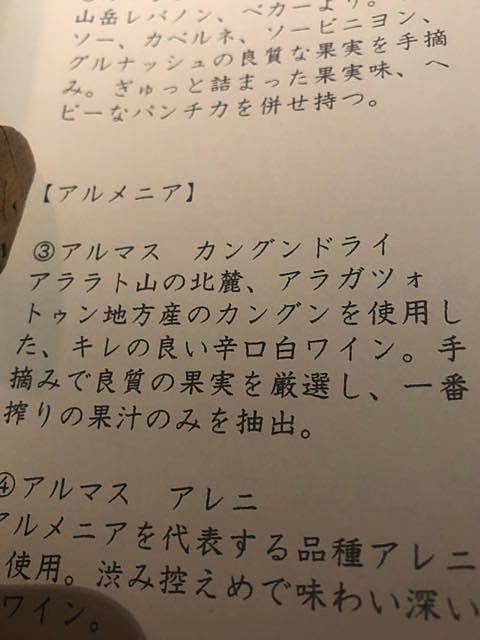 山岳レバノン、ベカーより。
ソー、カベルネ、ソービニヨン、
グルナッシュの良質な果実を手摘
み。ぎゅっと詰まった果実味、ヘ
ビーなパンチ力を併せ持つ。
【アルメニア】
③アルマス カングンドライ
アララト山の北麓、アラガツォ
トゥン地方産のカングンを使用し
た、キレの良い辛口白ワイン。手
摘みで良質の果実を厳選し、一番
搾りの果汁のみを抽出。
④アルマス アレニ
アルメニアを代表する品種アレニ
使用。渋み控えめで味わい深い
ワイン。